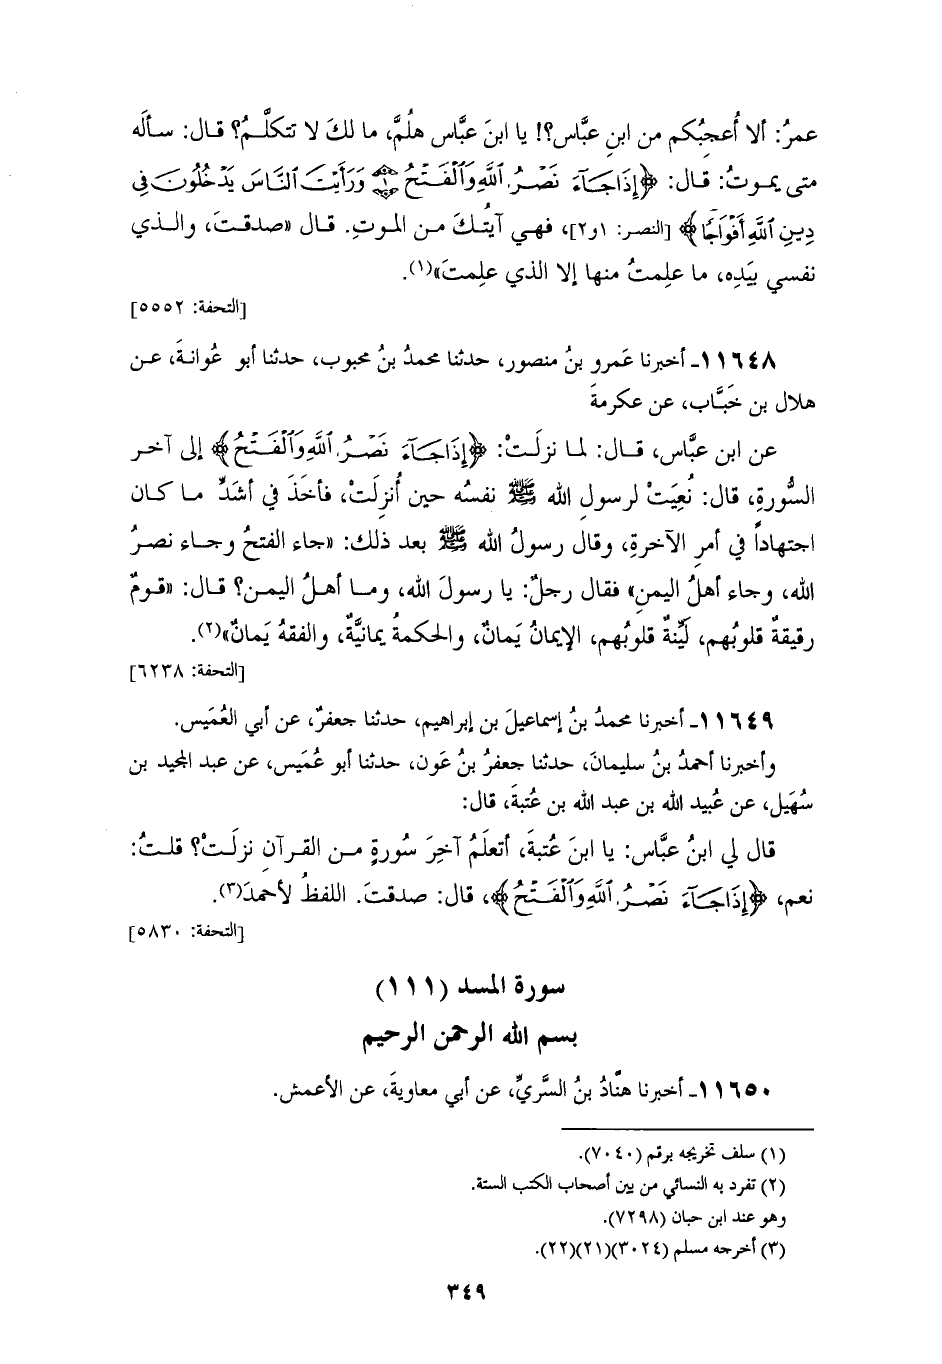 عمرُ: ألا أُعجِبُكم من ابنِ عبَّاس؟! يا ابنَ عبَّاس هلُمَّ، ما لكَ لا تتكلَّمُ؟ قال: سألَه
متى يموتُ: قال: ﴿إِذَا جَآءَ نَصْرُ ٱللَّهِ وَٱلْفَتْحُ ۝١ وَرَأَيْتَ ٱلنَّاسَ يَدْخُلُونَ فِى
دِينِ ٱللَّهِ أَفْوَاجًا﴾ [النصر: ١و٢]، فهي آيتُكَ من الموتِ. قال «صدقتَ، والذي
نفسي بيَدِه، ما علِمتُ منها إلا الذي علِمتَ»(١).
[التحفة: ٥٥٥٢]
١١٦٤٨ـ أخبرنا عَمرو بنُ منصور، حدثنا محمدُ بنُ محبوب، حدثنا أبو عَوانةَ، عن
هلال بن خَبَّاب، عن عكرمةَ
عن ابن عبَّاس، قال: لما نزلَتْ: ﴿إِذَا جَآءَ نَصْرُ ٱللَّهِ وَٱلْفَتْحُ﴾ إلى آخر
السُّورةِ، قال: نُعِيَتْ لرسولِ الله ﷺ نفسُه حين أُنزِلَتْ، فأخَذَ في أشدِّ ما كان
اجتهاداً في أمرِ الآخرةِ، وقال رسولُ الله ﷺ بعد ذلك: «جاء الفتحُ وجاء نصرُ
الله، وجاء أهلُ اليمنِ» فقال رجلٌ: يا رسولَ الله، وما أهلُ اليمن؟ قال: «قومٌ
رقيقةٌ قلوبُهم، لَيِّنةٌ قلوبُهم، الإيمانُ يَمانٌ، والحكمةُ يمانيَّةٌ، والفقهُ يَمانٌ»(٢).
[التحفة: ٦٢٣٨]
١١٦٤٩ـ أخبرنا محمدُ بنُ إسماعيلَ بن إبراهيم، حدثنا جعفرٌ، عن أبي العُمَيس.
وأخبرنا أحمدُ بنُ سليمانَ، حدثنا جعفرُ بنُ عَون، حدثنا أبو عُمَيس، عن عبد المجيد بن
سُهَيل، عن عُبيد الله بن عبد الله بن عُتبةَ، قال:
قال لي ابنُ عبَّاس: يا ابنَ عُتبةَ، أتعلَمُ آخِرَ سُورةٍ من القرآنِ نزلَتْ؟ قلتُ:
نعم، ﴿إِذَا جَآءَ نَصْرُ ٱللَّهِ وَٱلْفَتْحُ﴾، قال: صدقتَ. اللفظُ لأحمدَ(٣).
[التحفة: ٥٨٣٠]
سورة المسد (١١١)
بسم الله الرحمن الرحيم
١١٦٥٠ـ أخبرنا هنَّادُ بنُ السَّريِّ، عن أبي معاويةَ، عن الأعمش.
(١) سلف تخريجه برقم (٧٠٤٠).
(٢) تفرد به النسائي من بين أصحاب الكتب الستة.
وهو عند ابن حبان (٧٢٩٨).
(٣) أخرجه مسلم (٣٠٢٤)(٢١)(٢٢).
٣٤٩